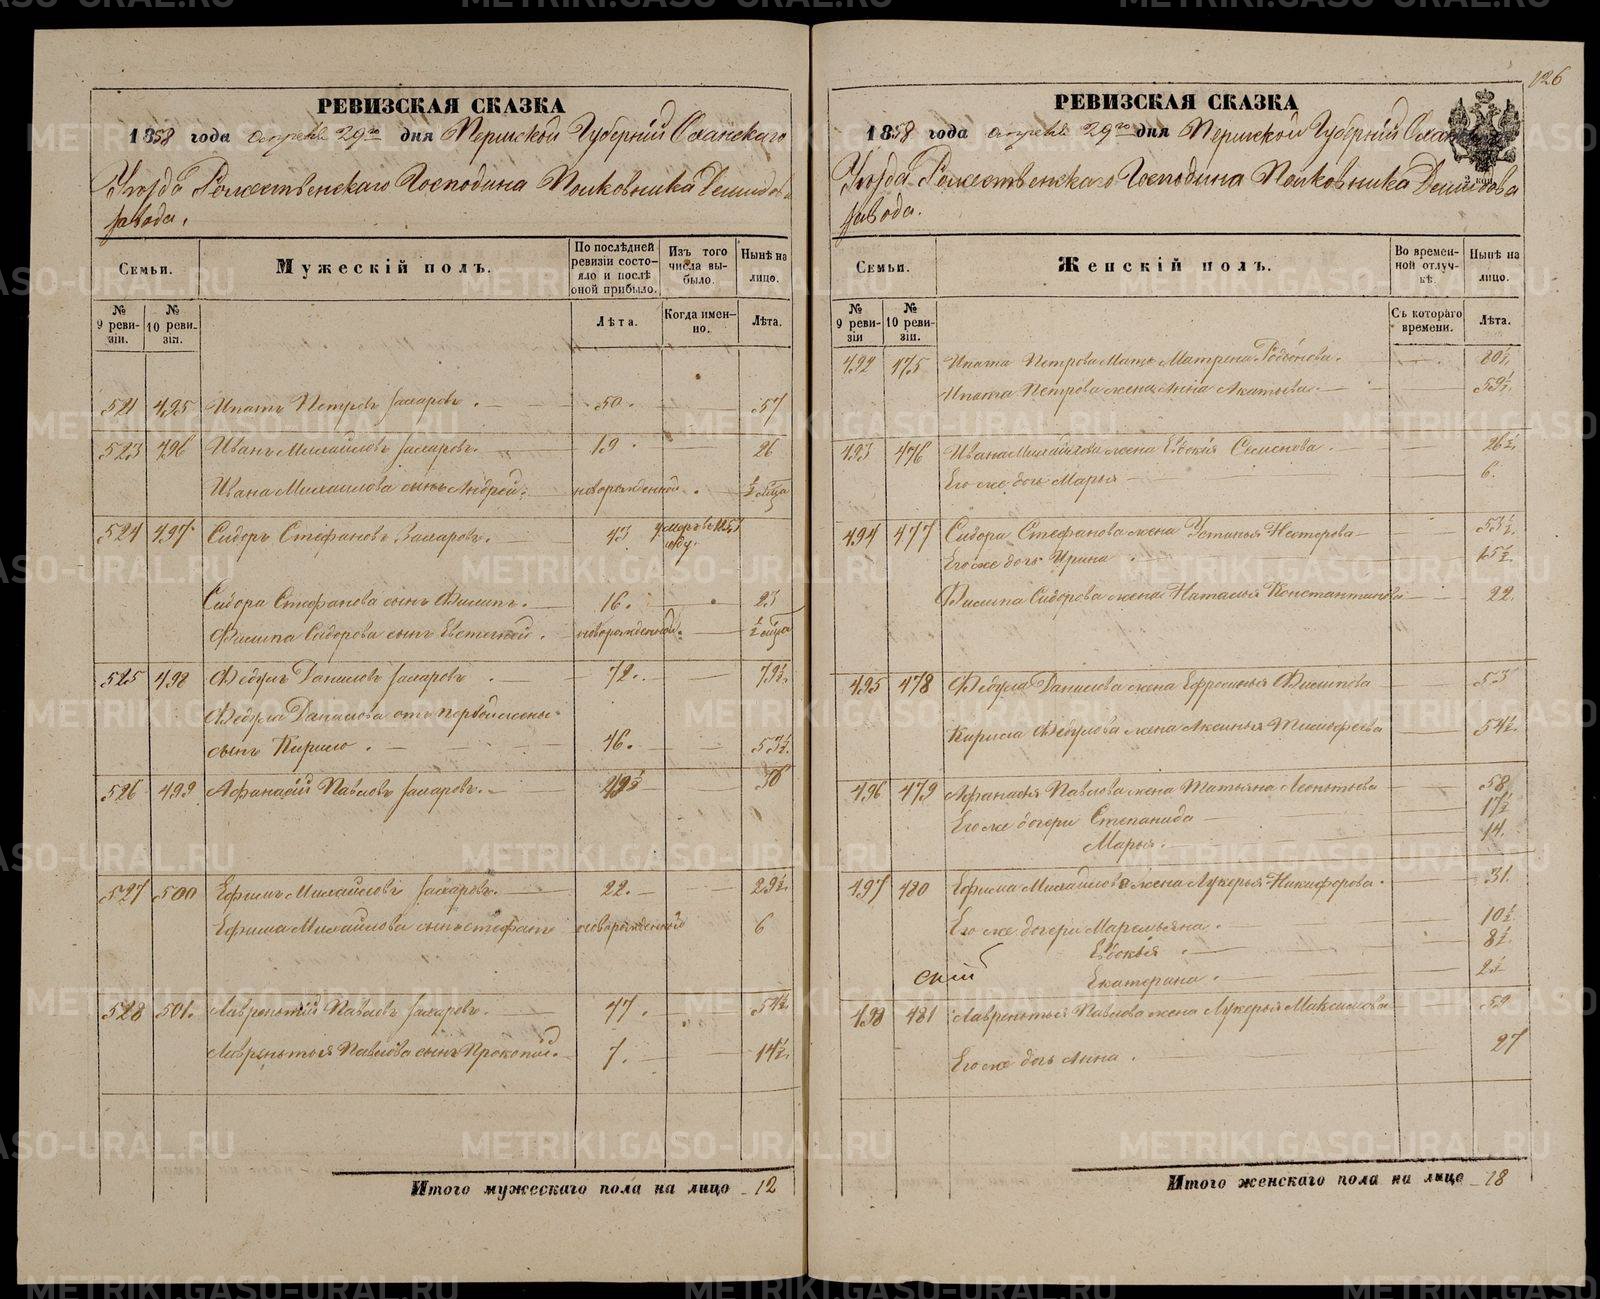 126
РЕВИЗСКАЯ СКАЗКА
1858 года апреля 29го дня Пермской Губернiи Оханскаго
Уезда Рожественскаго Господина Полковника Демидова
завода.
Семьи.
Мужескiй полъ.
По послѣдней ревизiи состояло и послѣ оной прибыло.
Изъ того числа выбыло.
Нынѣ на лицо.
№ 9 ревизiи.
№ 10 ревизiи.
Лѣта.
Когда именно.
Лѣта.
521 495 Ипатъ Петровъ Захаровъ. 50. 57
523 496 Иванъ Михайловъ Захаровъ. 19. 26
Ивана Михайлова сынъ Андрей. новорожденной. ½ мѣсяца
524 497 Сидоръ Стефановъ Захаровъ. 43 умеръ въ 1853 году.
Сидора Стефанова сынъ Филипъ. 16. 23
Филипа Сидорова сынъ Евстегней. новорожденной. ½ мѣсяца
525 498 Федулъ Даниловъ Захаровъ. 72. 79½
Федула Данилова отъ первой жены
сынъ Кирило. 46. 53½
526 499 Афанасiй Павловъ Захаровъ.
527 500 Ефимъ Михайловъ Захаровъ. 22. 29½
Ефима Михайлова сынъ Стефанъ новорожденный 6
528 501. Лаврентiй Павловъ Захаровъ. 47. 54½
Лаврентья Павлова сынъ Прокопiй. 7. 14½
Итого мужескаго пола на лицо 12
РЕВИЗСКАЯ СКАЗКА
1858 года апреля 29го дня Пермской Губернiи Оханскаго
2 коп.
Уезда Рожественскаго Господина Полковника Демидова
завода.
Семьи.
Женскiй полъ.
Во временной отлучкѣ.
Нынѣ на лицо.
№ 9 ревизiи
№ 10 ревизiи.
Съ котораго времени.
Лѣта.
492 475 Ипата Петрова Мать Матрена Родионова. 80½
Ипата Петрова жена Анна Акатьева. 59½
493 476 Ивана Михайлова жена Евдокiя Семенова. 26½
Его же дочь Марья 6.
494 477 Сидора Стефанова жена Устинья Нестерова 53½
Его же дочь Ирина 15½
Филипа Сидорова жена Наталья Константинова 22.
495 478 Федула Данилова жена Ефросинья Филипова 53
Кирила Федулова жена Аксинья Тимофеева 54½
496 479 Афанасья Павлова жена Татьяна Леонтьева 58
Его же дочери Степанида 17½
Марья. 14.
497 480 Ефима Михайлова жена Лукерья Никифорова. 31.
Его же дочери Маремьяна. 10½
Евдокiя. 8½
скiй
Екатерина. 2½
498 481 Лаврентья Павлова жена Лукерья Максимова 52
Его же дочь Анна. 27
Итого женскаго пола на лицо 18
METRIKI.GASO-URAL.RU